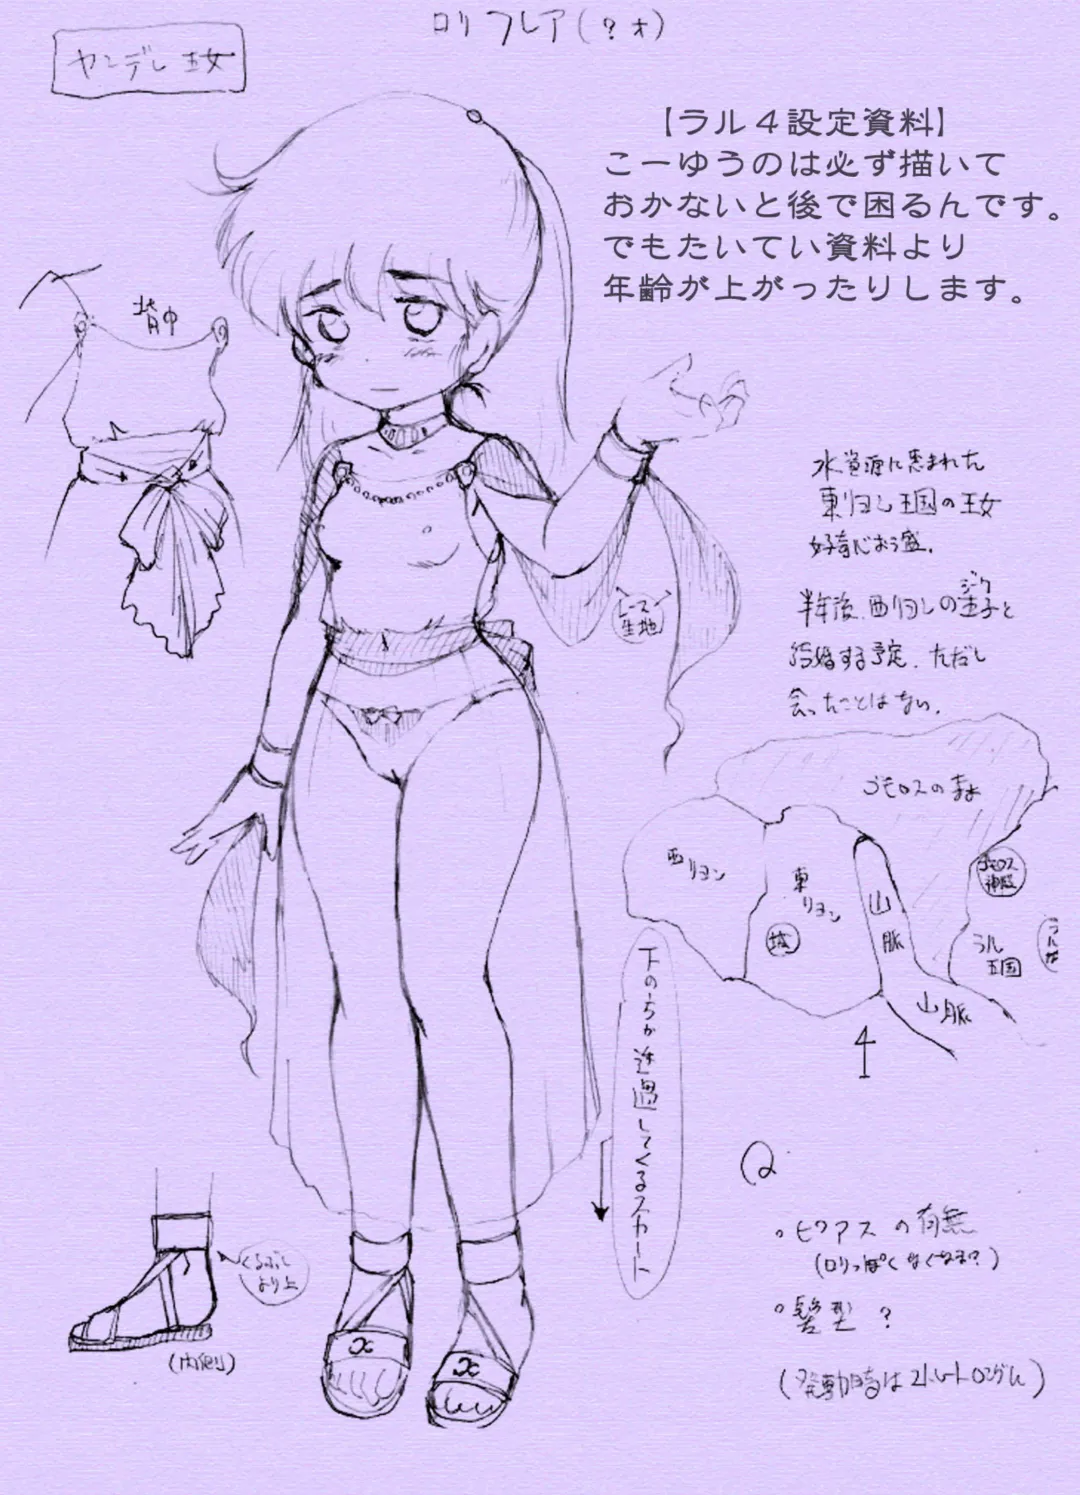 ロリフレア(?才)
ヤンデレ王女
【ラル4設定資料】
こーゆうのは必ず描いて
おかないと後で困るんです。
でもたいてい資料より
年齢が上がったりします。
背中
水資源に恵まれた
東リヨン王国の王女
好奇心おう盛.
レース
生地
半年後.西リヨンの王子と
ジーク
結婚する予定.ただし
会ったことはない.
ゴモロスの森
西リヨン
東
リヨン
城
山
脈
ゴモロス
神殿
ラル
王国
山脈
4
下のちが透過してくるスカート
Q
・ピアスの有無
(ロリっぽくなくなる?)
・髪型?
(発動時はストレートロングで)
くるぶし
より上
(内側)